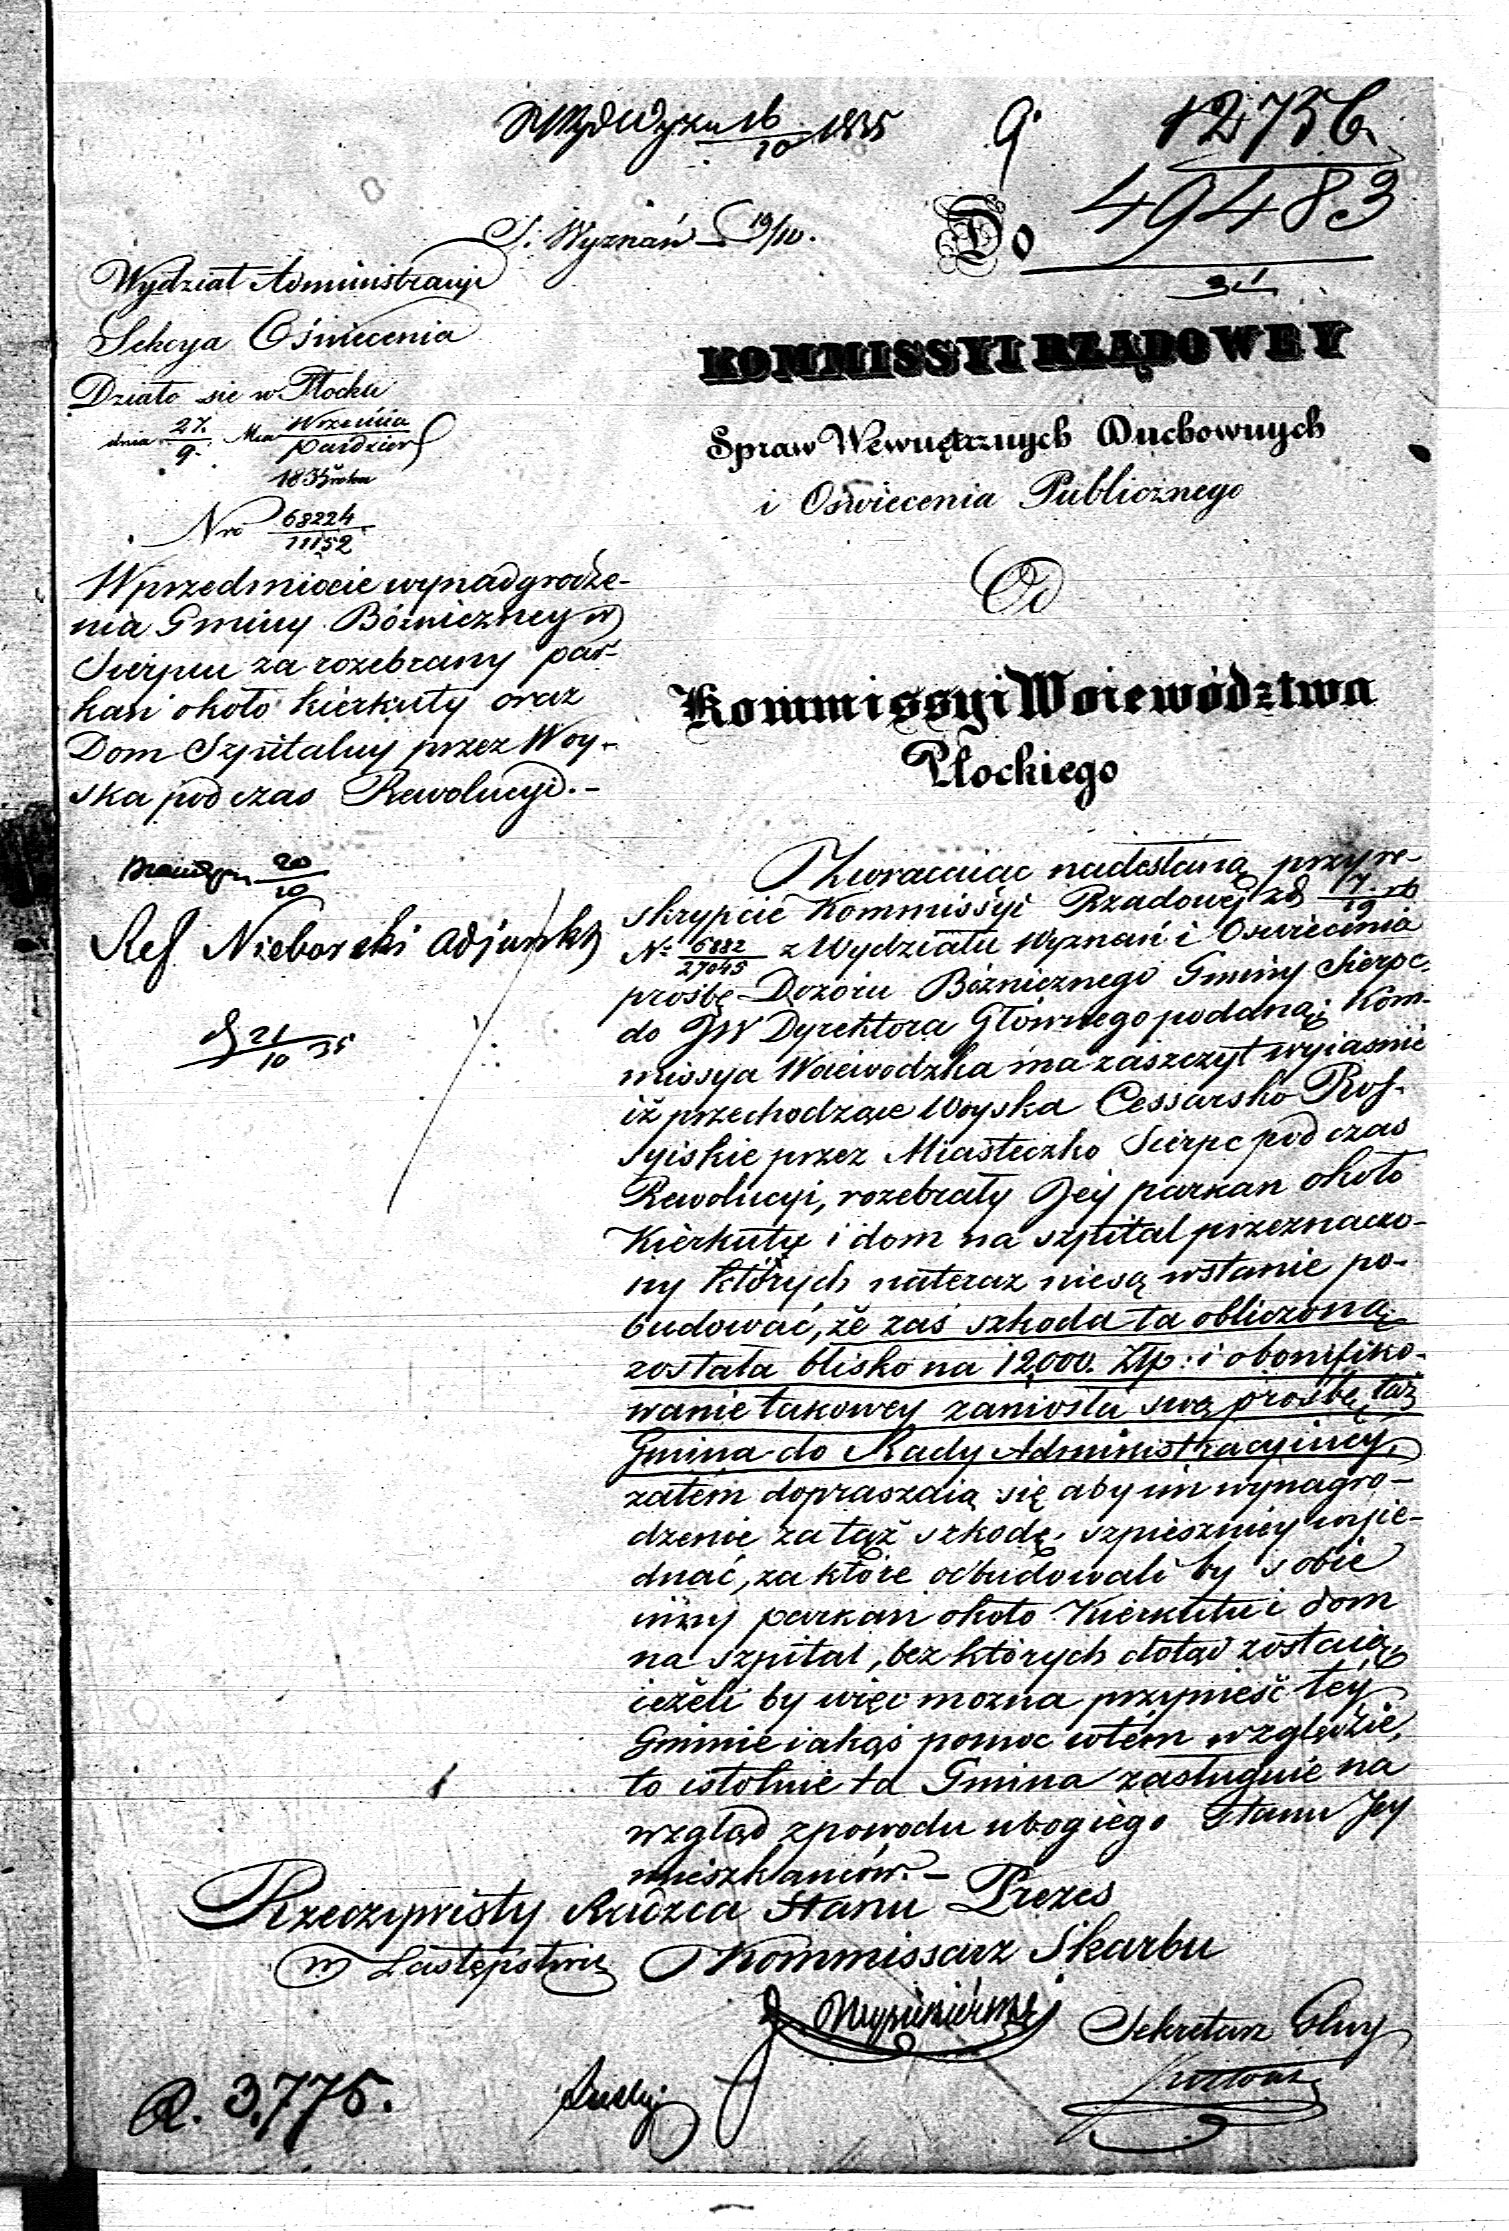 16/10 1835
9.
12736
49483
S: Wyznań 19/10.
Do
31
Wydział Administracyi
Sekcya Oświecenia
Działo się w Płocku
dnia 27./9. Mca Września/Paździer
1835 roku
Nro 68224/11152
KOMMISSYI RZĄDOWEY
Spraw Wewnętrznych Duchownych
i Oświecenia Publicznego
Od
Kommissyi Woiewództwa
Płockiego
W przedmiocie wynadgrodze-
nia Gminy Bóżniczney w
Sierpcu za rozebrany par-
kan około kierkuty oraz
Dom Szpitalny przez Woy-
ska podczas Rewolucyi.-
20/10
Ref Nieborski adjunkt
21/10 35
Zwracaiąc nadesłaną przy re-
skrypcie Kommissyi Rządowej z d 7/19 rb
No 6882/27045 z Wydziału Wyznań i Oświecenia
prośbę Dozoru Bóżnicznego Gminy Sierpc
do JW Dyrektora Głównego podaną; Kom-
missya Woiewodzka ma zaszczyt wyiaśnić
iż przechodzące Woyska Cessarsko Ros-
syiskie przez Miasteczko Sierpc podczas
Rewolucyi, rozebrały Jey parkan około
Kierkuty i dom na szpital przeznaczo-
ny których nateraz niesą wstanie po-
budować, że zaś szkoda ta obliczoną
została blisko na 12,000. Złp: i obonifiko-
wanie takowey zaniosła swą prośbę taż
Gmina do Rady Administracyiney,
zatem dopraszaią się aby im wynagro-
dzenie za tąż szkodę, szpieszniey wyie-
dnać, za które odbudowali by sobie
inny parkan około Kierkutu i dom
na szpital, bez których dotąd zostaią,
ieżeli by więc można przynieść tey
Gminie iakąś pomoc wtem względzie,
to istotnie ta Gmina zasługuie na
wzgląd z powodu ubogiego Stanu Jey
mieszkańców.-
Rzeczywisty Radzca Stanu Prezes
w Zastępstwie Kommissarz Skarbu
Sekretarz Glny
R. 3,775.